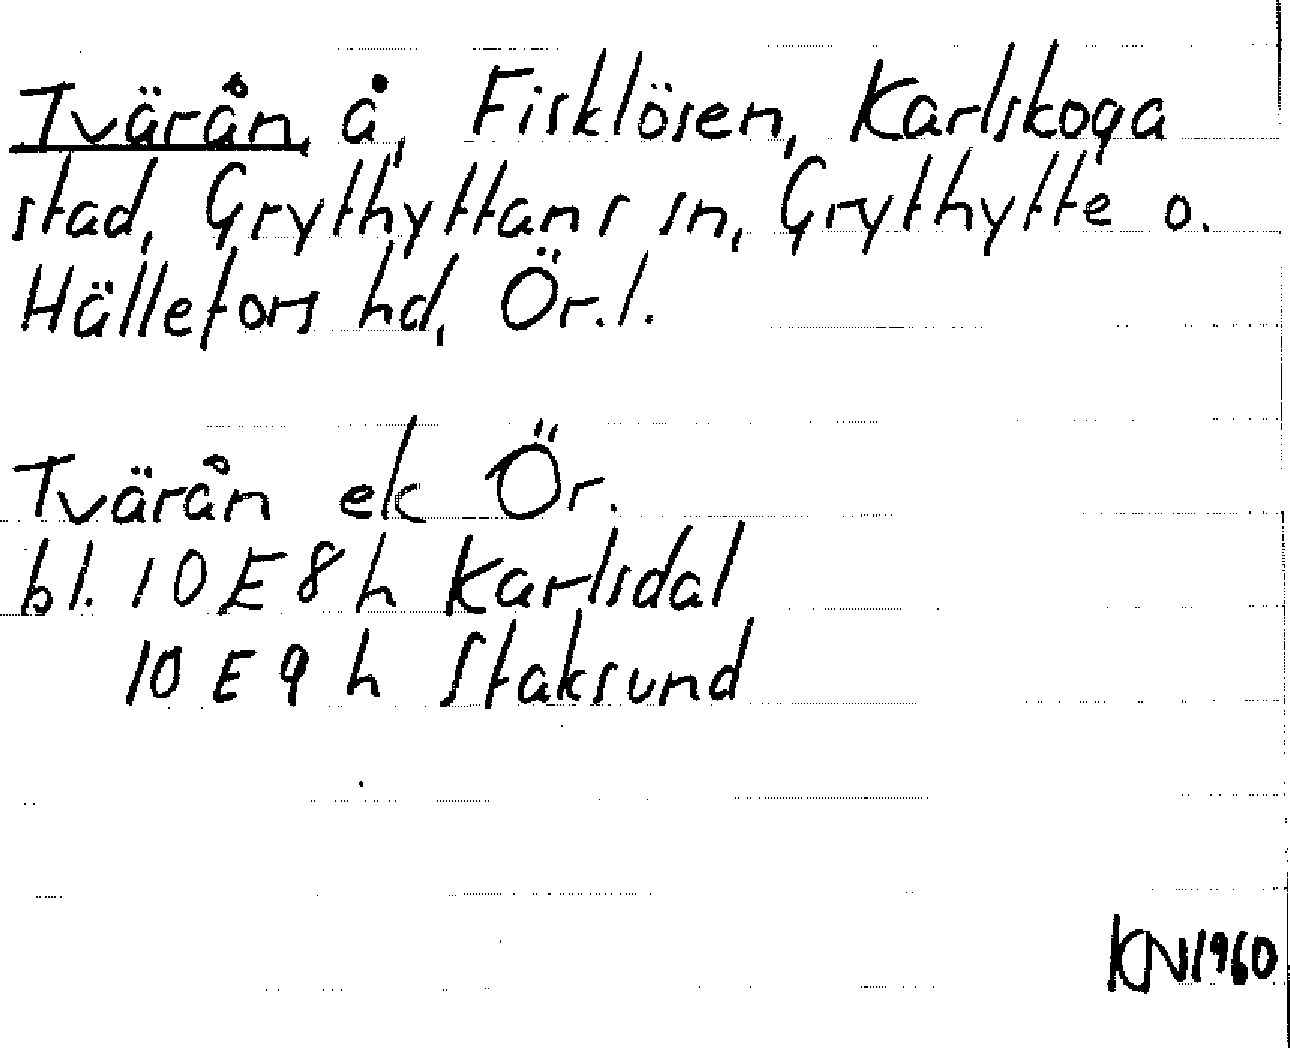 Tvärån, å, Fisklösen, Karlskoga
stad, Grythyttans sn, Grythytte o.
Hällefors hd, Ör.l.
Tvärån ek Ör.
bl. 10E8h Karlsdal
10E9h Staksund
KN1960